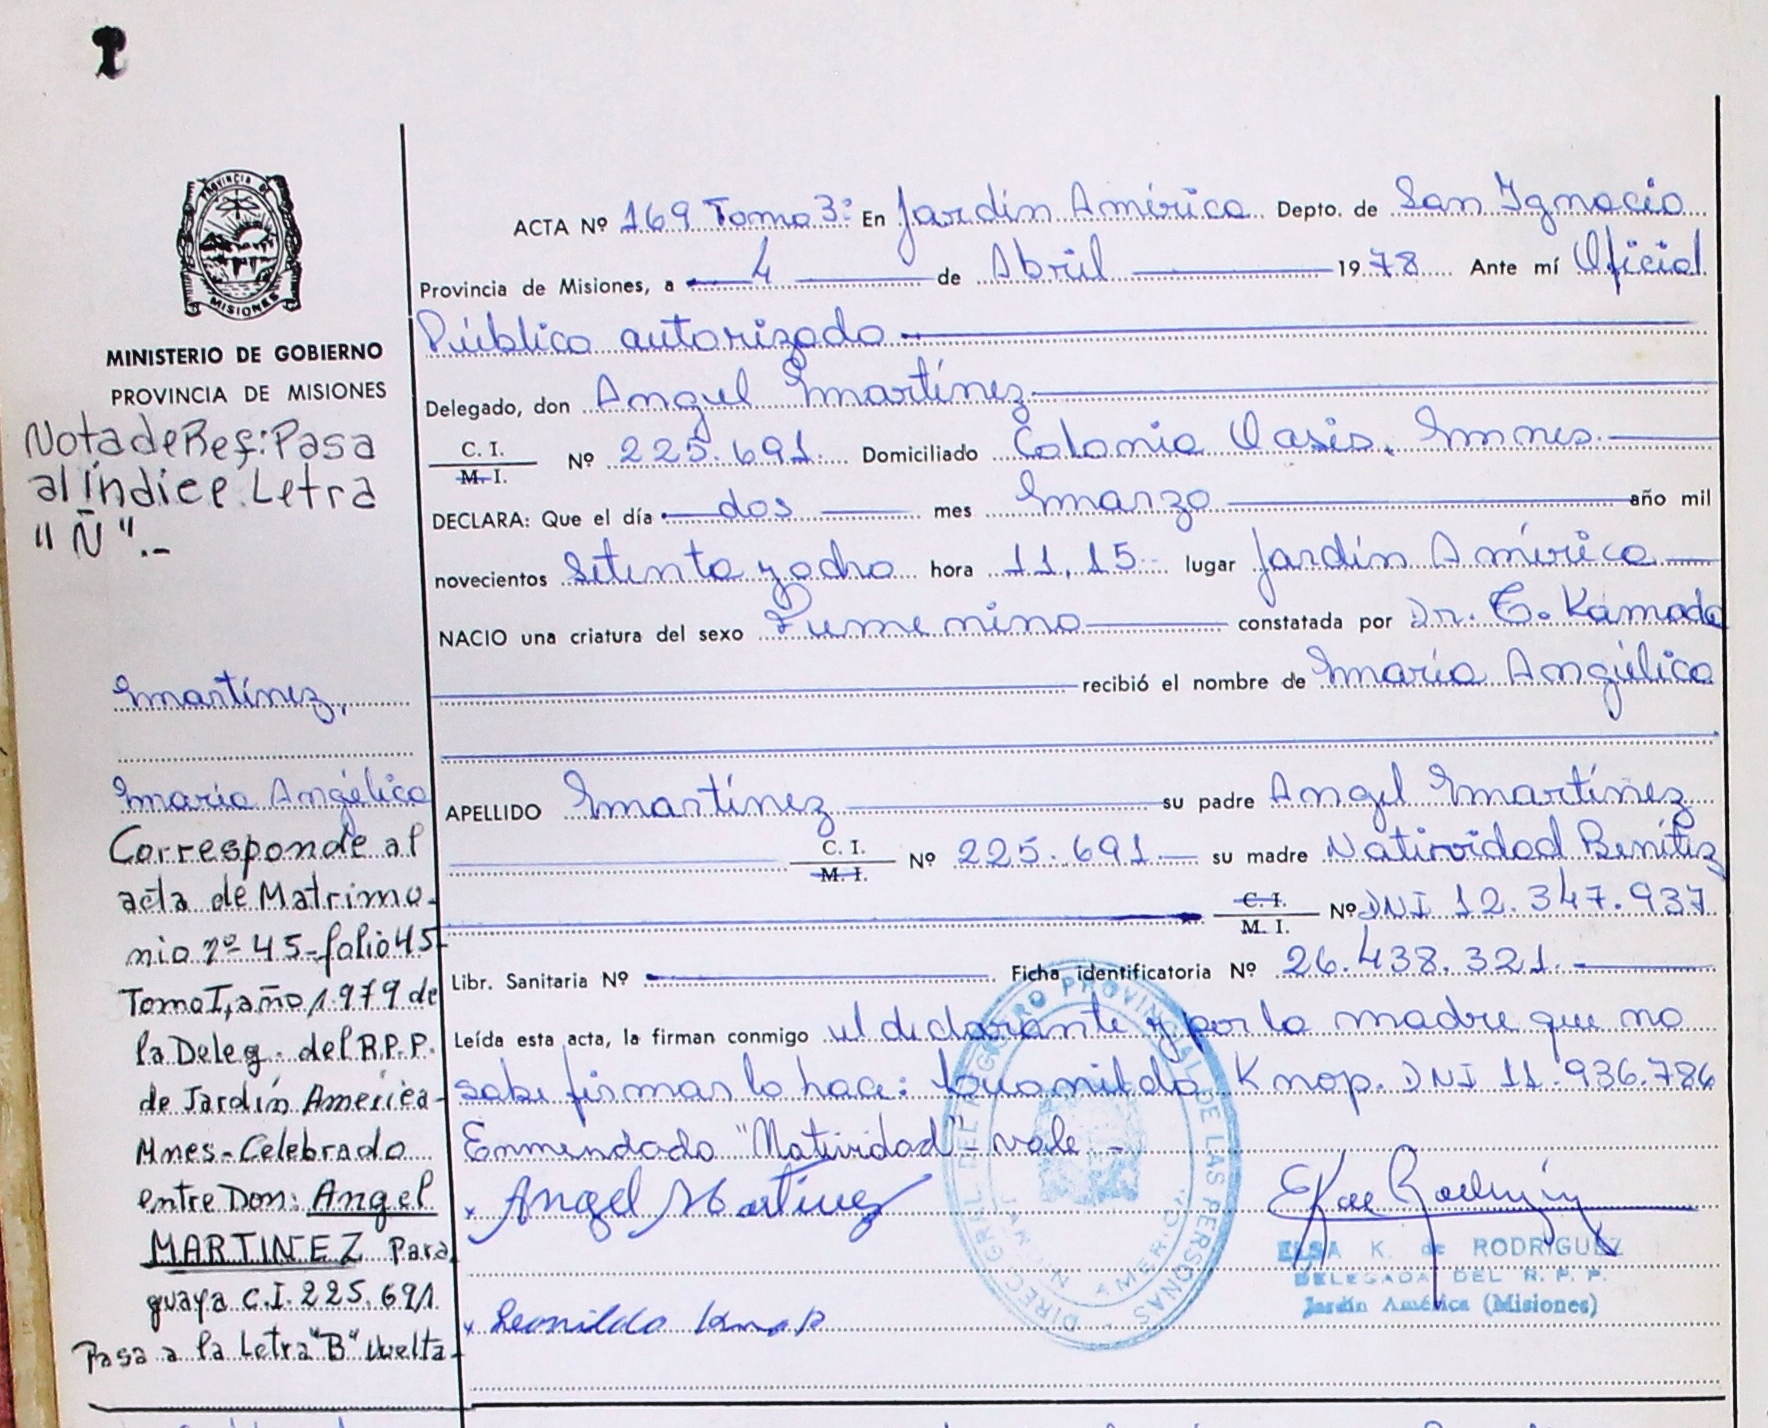 PROVINCIA DE
MISIONES
MINISTERIO DE GOBIERNO
PROVINCIA DE MISIONES
Nota de Ref: Pasa
al Índice Letra
"Ñ".-
Martínez,
María Angélica
Corresponde al
acta de Matrimo-
nio nº 45-folio 45
Tomo I, año 1.979 de
la Deleg. del R.P.P.
de Jardín América-
Mnes-Celebrado
entre Don: Angel
MARTINEZ Para
guaya C.I. 225.691
Pasa a la Letra "B" Vuelta-
ACTA Nº 169 Tomo 3º En Jardín América Depto. de San Ignacio
Provincia de Misiones, a 4 de Abril 1978 Ante mí Oficial
Público autorizado
Delegado, don Angel Martínez
C. I.
M. I. Nº 225.691. Domiciliado Colonia Oasis. Mnes.
DECLARA: Que el día dos mes Marzo año mil
novecientos Setenta y ocho hora 11,15 lugar Jardín América
NACIO una criatura del sexo Femenino constatada por Dr. C. Kamada
recibió el nombre de María Angélica
APELLIDO Martínez su padre Angel Martínez
C. I.
M. I. Nº 225.691 su madre Natividad Benítez
C. I.
M. I. Nº DNI 12.347.937
Libr. Sanitaria Nº Ficha identificatoria Nº 26.438.321.
Leída esta acta, la firman conmigo el declarante y por la madre que no
sabe firmar lo hace: Knop. DNI 11.936.786
Enmendado "Natividad" - vale -
x Angel Martinez
ELSA K. de RODRIGUEZ
DELEGADA DEL R. P. P.
Jardín América (Misiones)
x Leonilda Knop
DIREC. GRAL. DEL REGISTRO PROVINCIAL DE LAS PERSONAS
JARDIN AMERICA